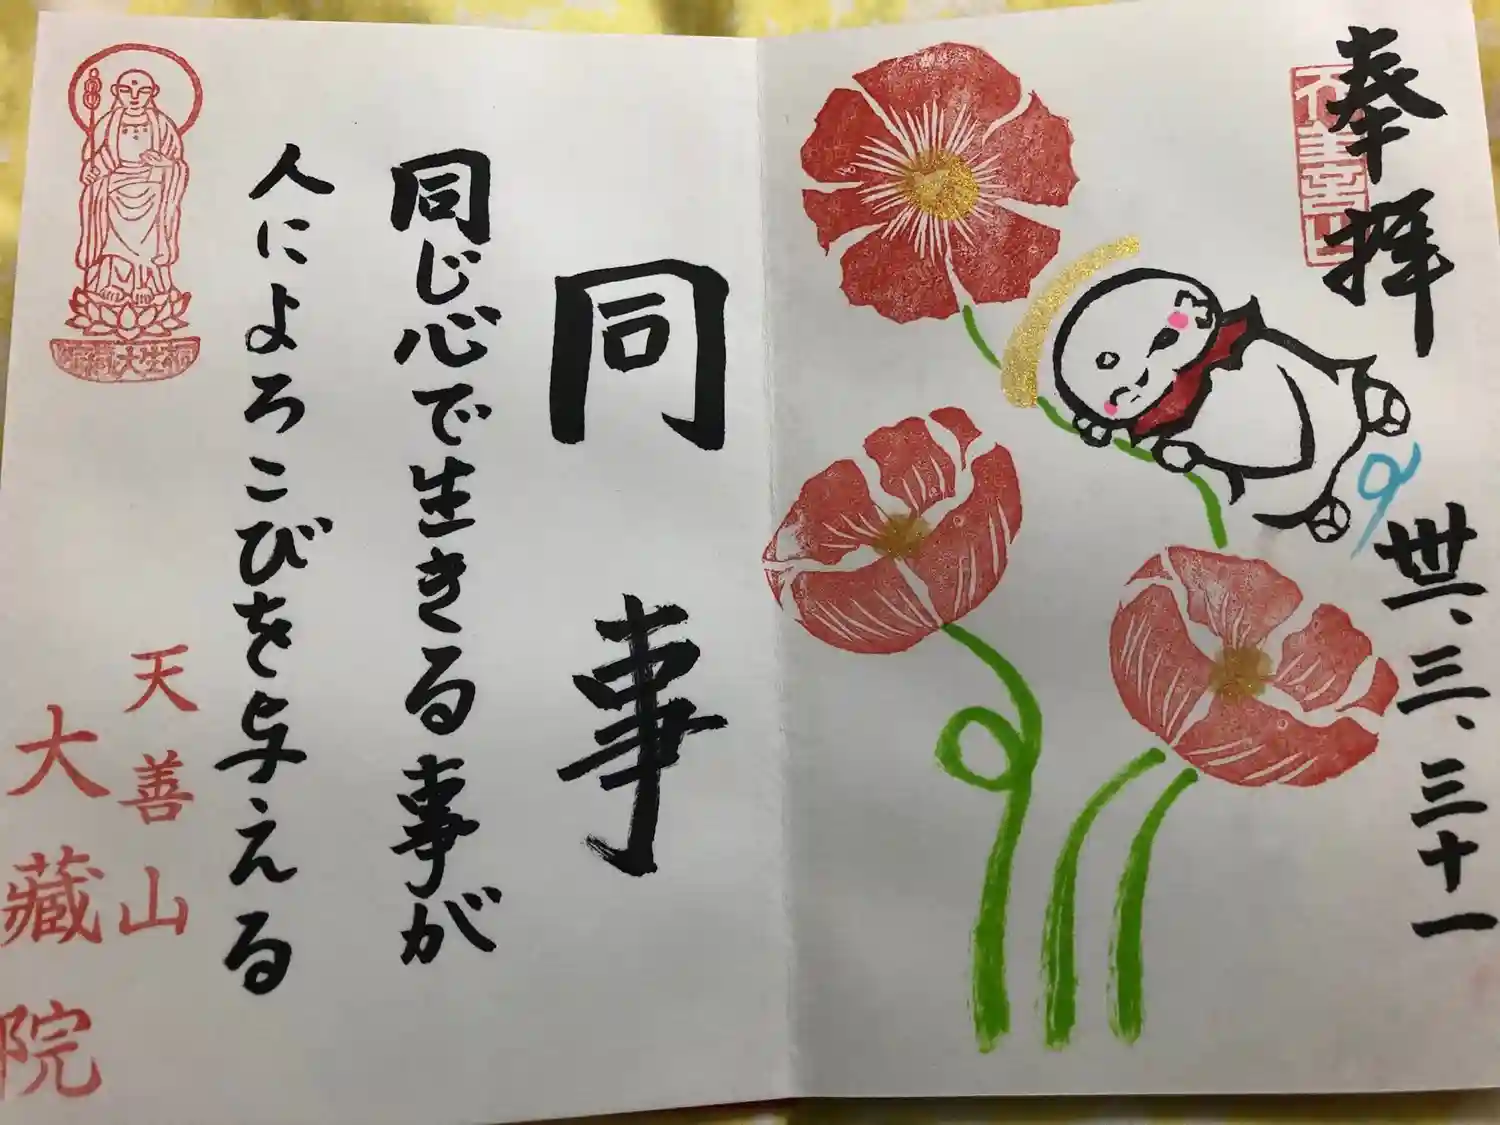 奉拝
卅、三、三十一
同事
同じ心で生きる事が
人によろこびを与える
天善山
大藏院